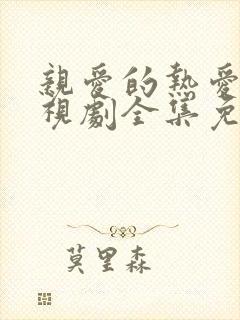 親愛的熱愛
視劇全集免
莫里森